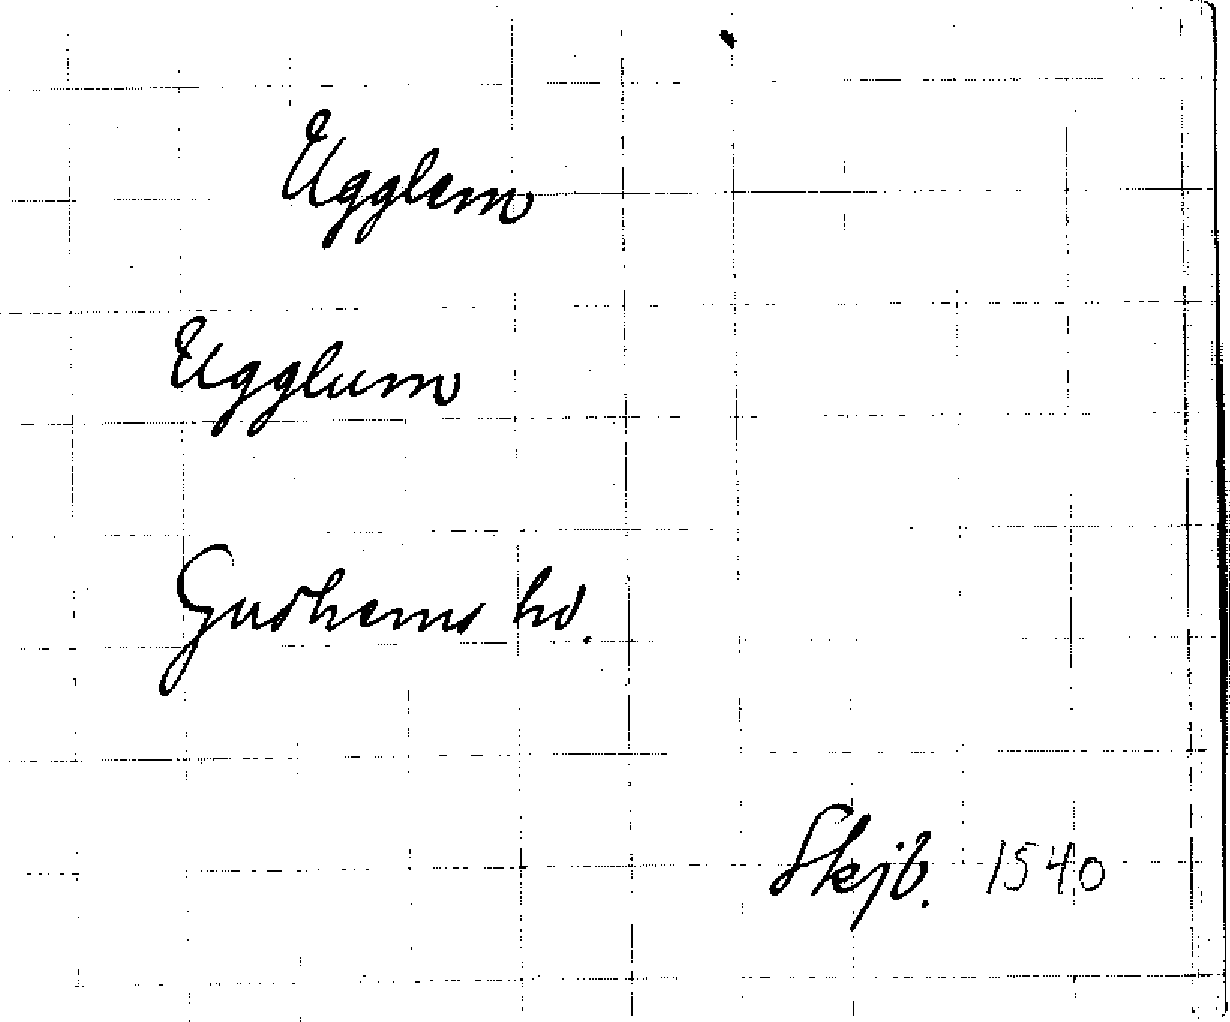 Ugglem
Ugglum
Gudhems hd.
Skjb. 1540